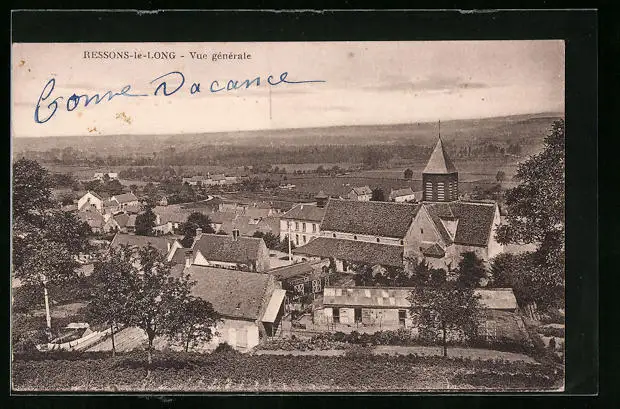 RESSONS-le-LONG - Vue générale
Bonne Vacance